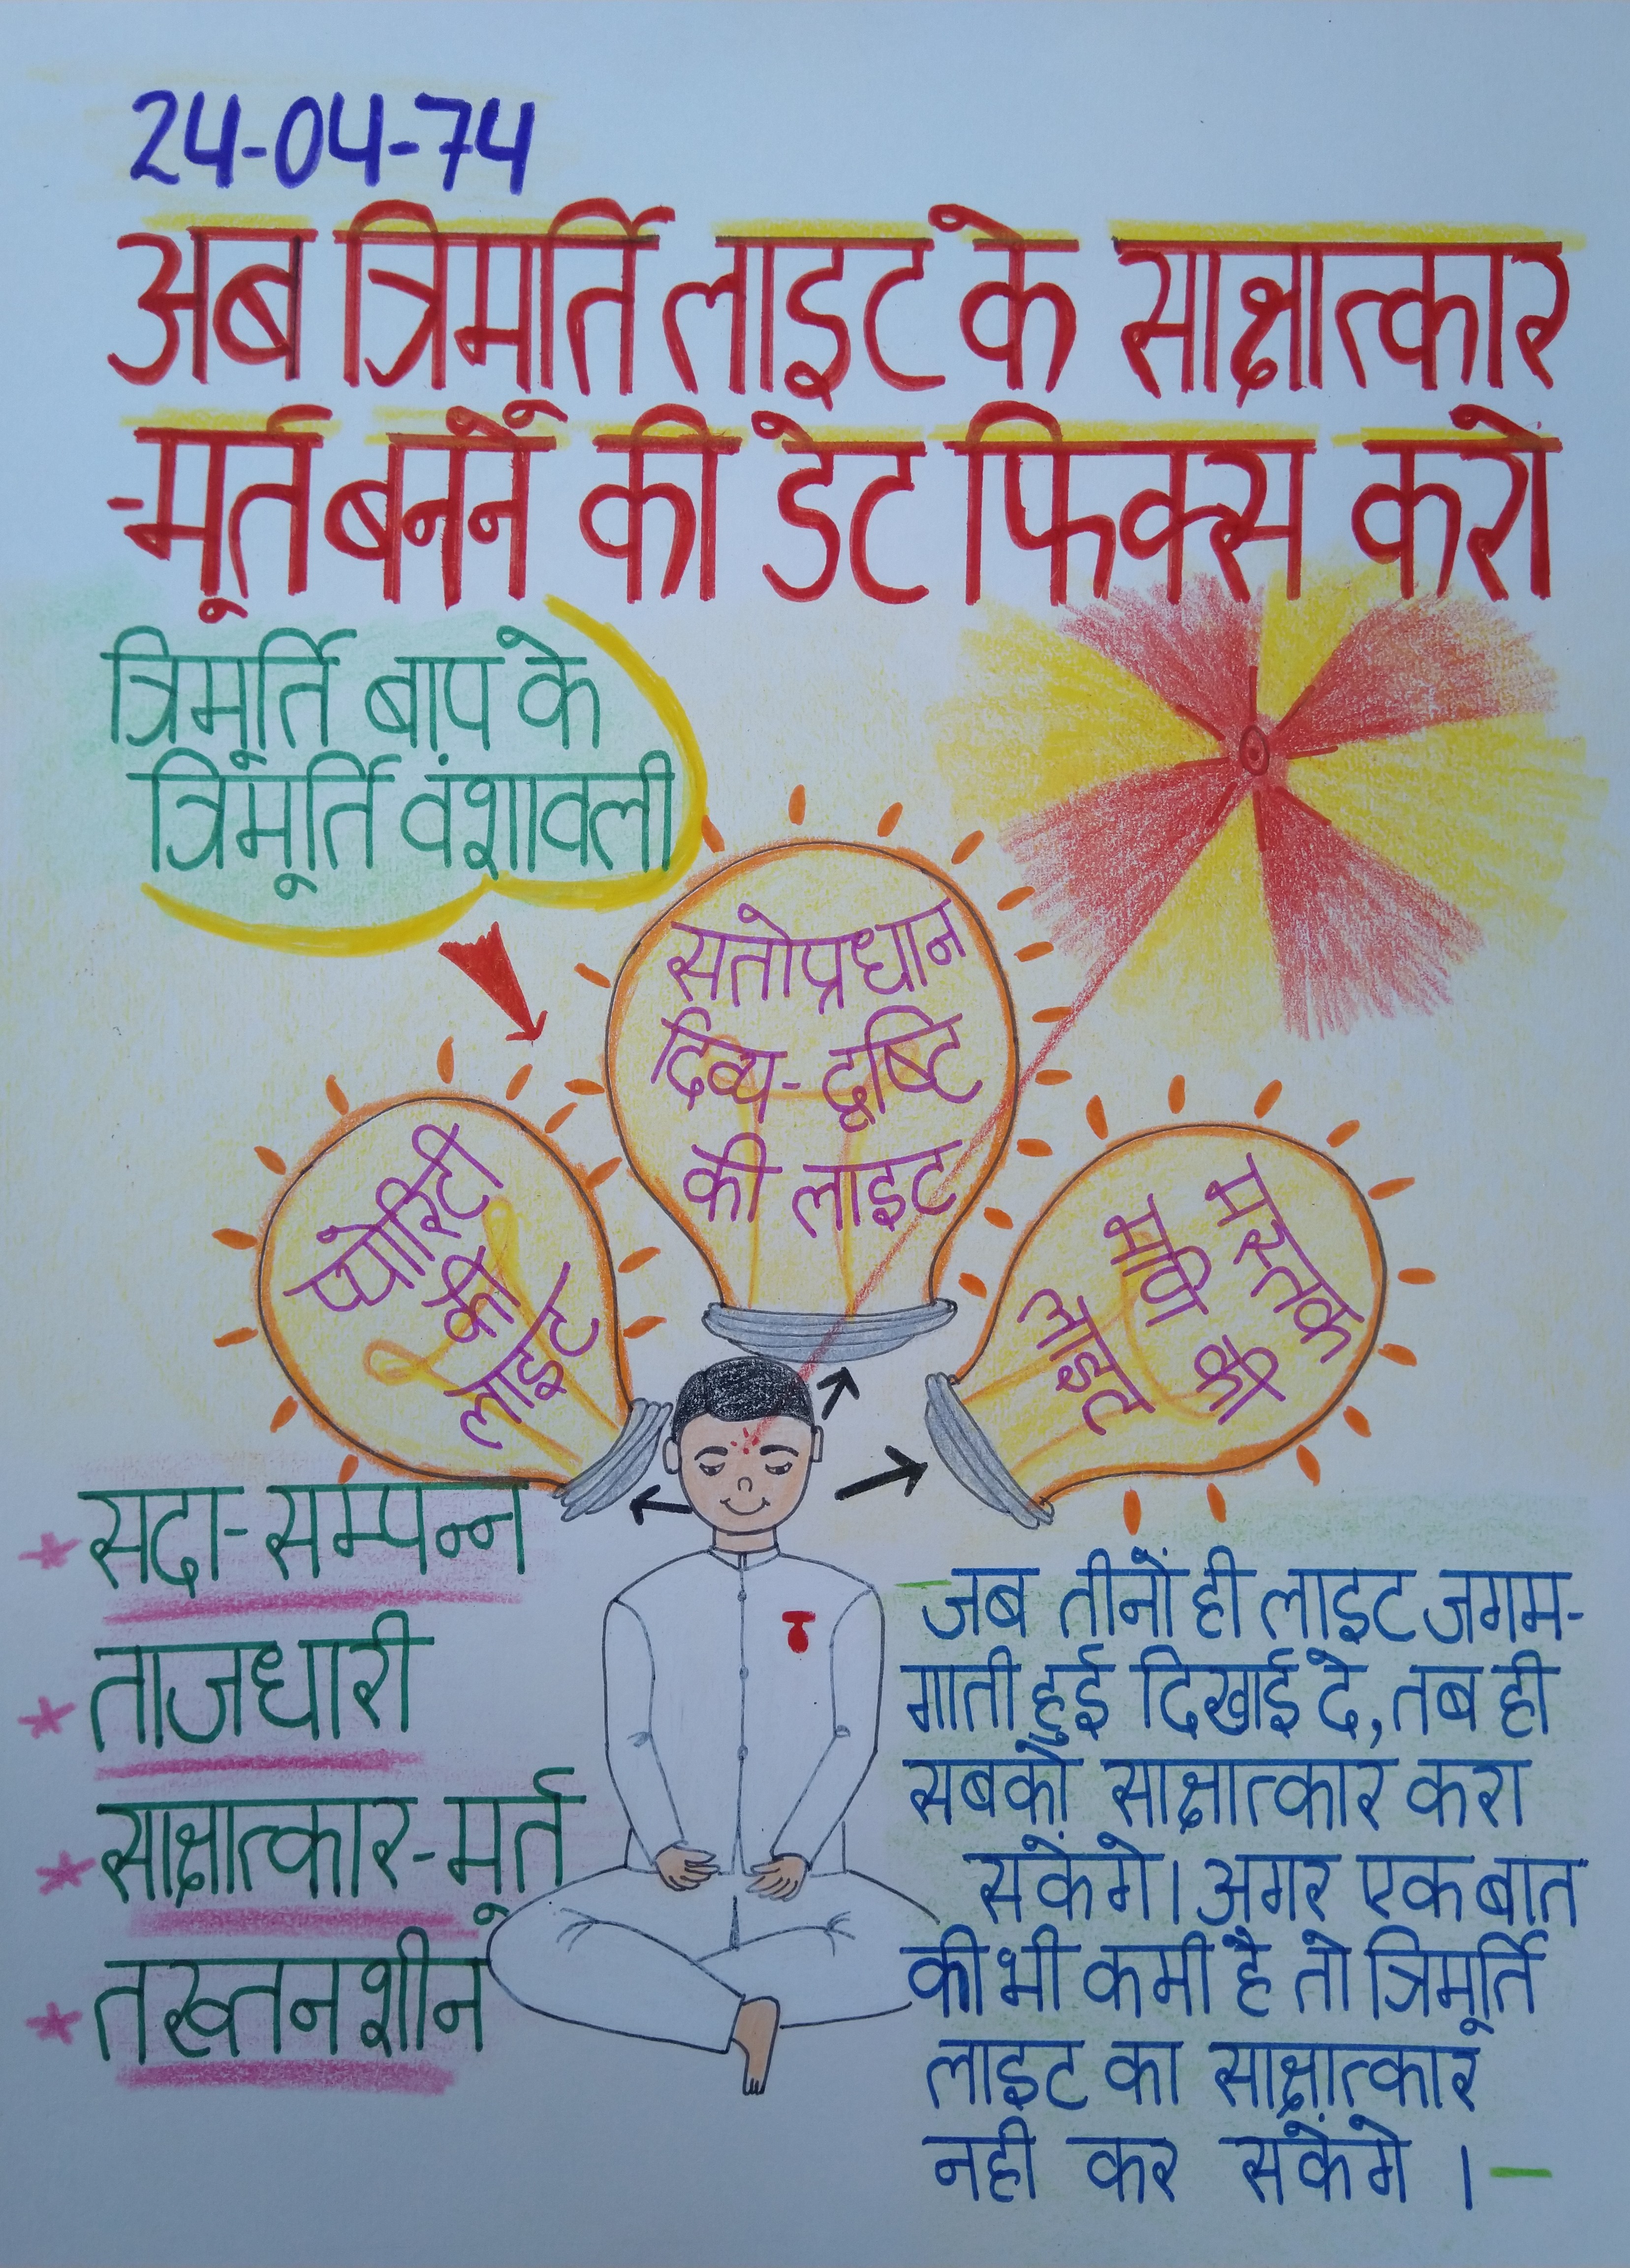 24-04-74
अब त्रिमूर्ति लाइट के साक्षात्कार
-मूर्त बनने की डेट फिक्स करो
त्रिमूर्ति बाप के
त्रिमूर्ति वंशावली
सतोप्रधान
दिव्य-दृष्टि
की लाइट
प्योरिटी
की
लाइट
मस्तक
मणि की
लाइट
* सदा-सम्पन्न
* ताजधारी
* साक्षात्कार-मूर्त
* तख्तनशीन
-जब तीनों ही लाइट जगम-
गाती हुई दिखाई दे, तब ही
सबको साक्षात्कार करा
सकेंगे। अगर एक बात
की भी कमी है तो त्रिमूर्ति
लाइट का साक्षात्कार
नही कर सकेंगे ।-